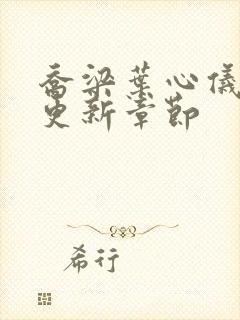 乔梁叶心仪
更新章节
希行